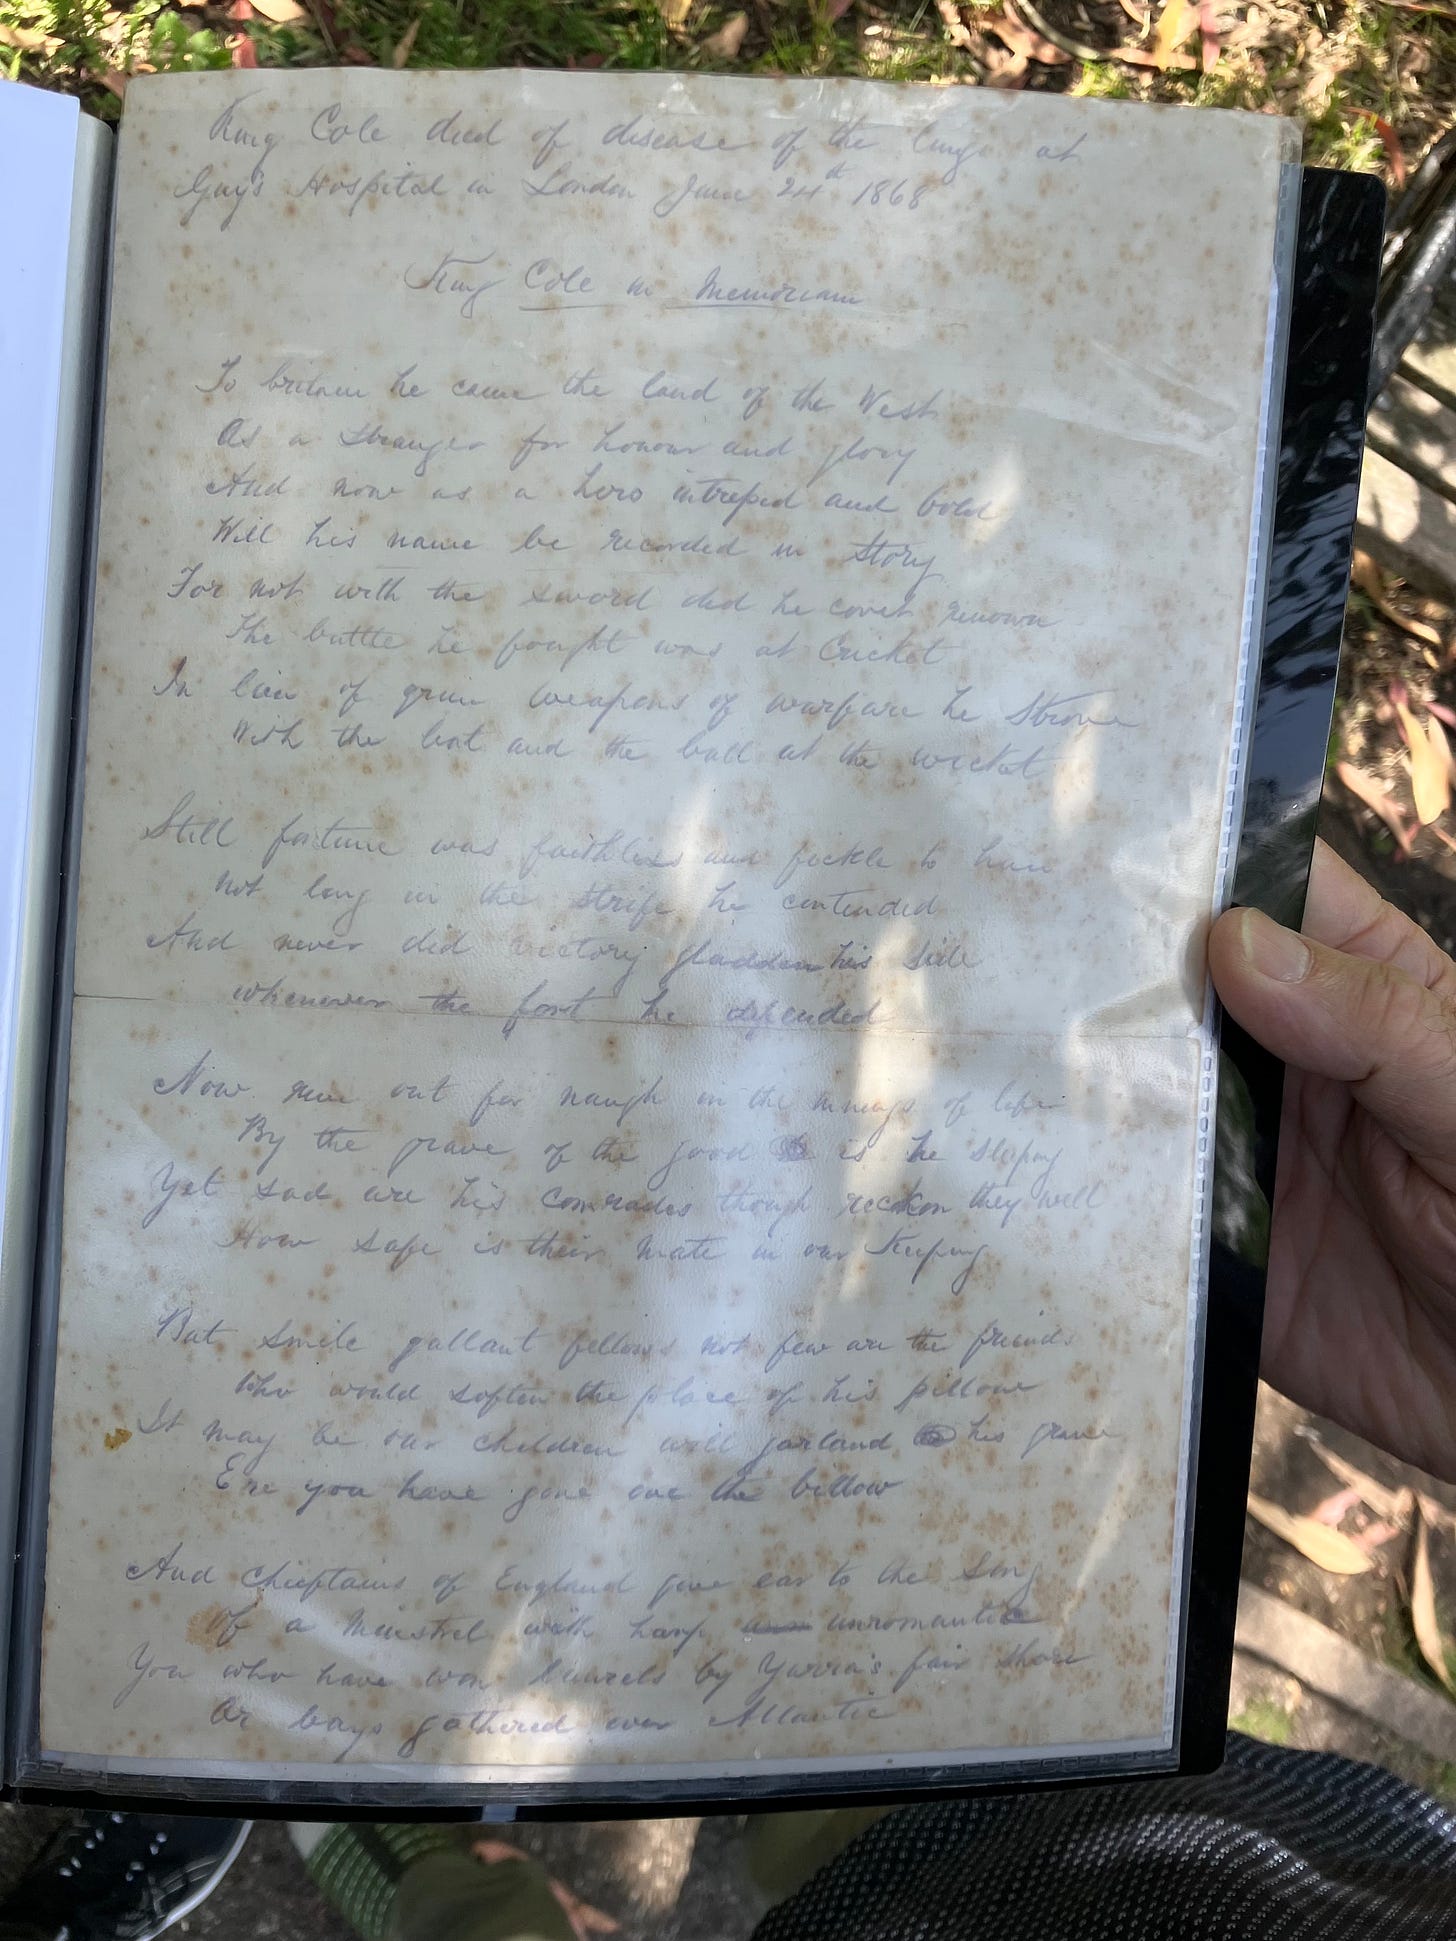 King Cole died of disease of the lungs at
Guy's Hospital in London June 24th 1868
King Cole in Memoriam
To britain he came the land of the West
As a stranger for honour and glory
And now as a hero intrepid and bold
Will his name be recorded in Story
For not with the sword did he covet renown
The battle he fought was at Cricket
In lieu of grim weapons of warfare he Strove
With the bat and the ball at the wicket
Still fortune was faithless and fickle to him
Not long in the Strife he contended
And never did victory gladden his side
whenever the fort he defended
Now run out for naugh in the innings of life
By the grave of the good is he sleping
Yet sad are his comrades though reckon they well
How safe is their mate in our Keeping
But smile gallant fellows not few are the friends
Who would soften the place of his pillow
It may be our children will garland his grave
Ere you have gone ore the billow
And chieftains of England give ear to the song
Of a Minstrel with harp unromantic
You who have won laurels by Yarra's fair shore
Or bays gathered over Atlantic